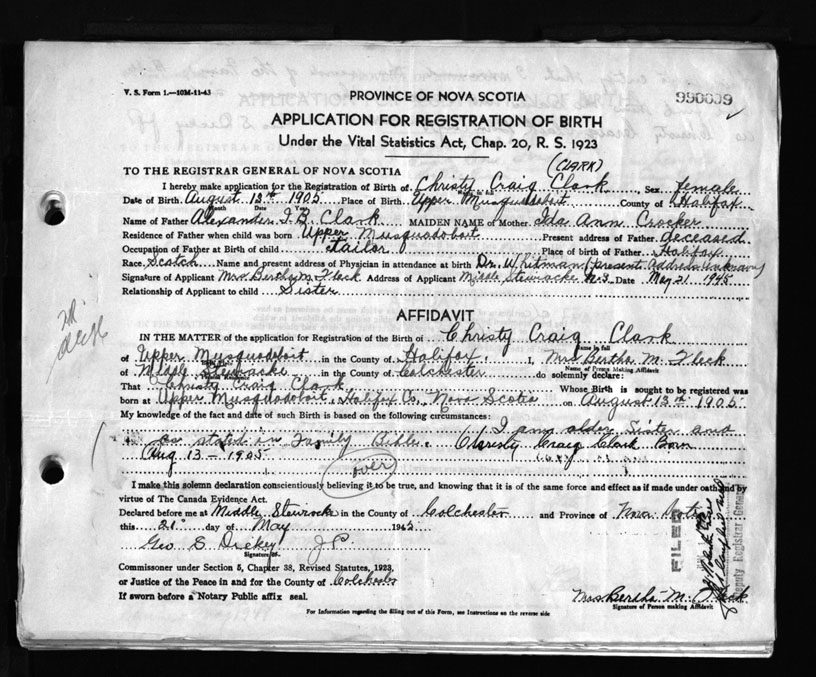 V. S. Form 1.—10M-11-43
PROVINCE OF NOVA SCOTIA
990009
APPLICATION FOR REGISTRATION OF BIRTH
Under the Vital Statistics Act, Chap. 20, R. S. 1923
(CLARK)
TO THE REGISTRAR GENERAL OF NOVA SCOTIA
I hereby make application for the Registration of Birth of Christy Craig Clark, Sex female
Date of Birth August 13th 1905 Place of Birth Upper Musquodoboit County of Halifax
Month Date Year
Name of Father Alexander I.B. Clark MAIDEN NAME of Mother Ida Ann Crocker
Residence of Father when child was born Upper Musquodoboit Present address of Father deceased
Occupation of Father at Birth of child tailor Place of birth of Father Halifax
Race Scotch Name and present address of Physician in attendance at birth Dr. Whitman (present Address unknown)
Signature of Applicant Mrs. Bertha M. Fleck Address of Applicant Middle Stewiacke N.S. Date May 21 1945
Relationship of Applicant to child Sister
AFFIDAVIT
IN THE MATTER of the application for Registration of the Birth of Christy Craig Clark
Name in full
of Upper Musquodoboit in the County of Halifax, I, Mrs Bertha M. Fleck
Name of Person Making Affidavit
of Middle Stewiacke in the County of Colchester do solemnly declare:
That Christy Craig Clark Whose Birth is sought to be registered was
born at Upper Musquodoboit, Halifax Co. Nova Scotia on August 13th 1905
My knowledge of the fact and date of such Birth is based on the following circumstances:
I am older Sister and
as stated in Family Bible. Christy Craig Clark Born
Aug 13 - 1905
over
I make this solemn declaration conscientiously believing it to be true, and knowing that it is of the same force and effect as if made under oath and by
virtue of The Canada Evidence Act.
Declared before me at Middle Stewiacke in the County of Colchester and Province of Nova Scotia
this 21 day of May 1945
Geo S. Dickey J.P.
Signature of
Commissioner under Section 5, Chapter 38, Revised Statutes, 1923,
or Justice of the Peace in and for the County of Colchester
If sworn before a Notary Public affix seal.
FILED
Deputy Registrar General
Mrs Bertha M. Fleck
Signature of Person making Affidavit
For Information regarding the filling out of this Form, see Instructions on the reverse side